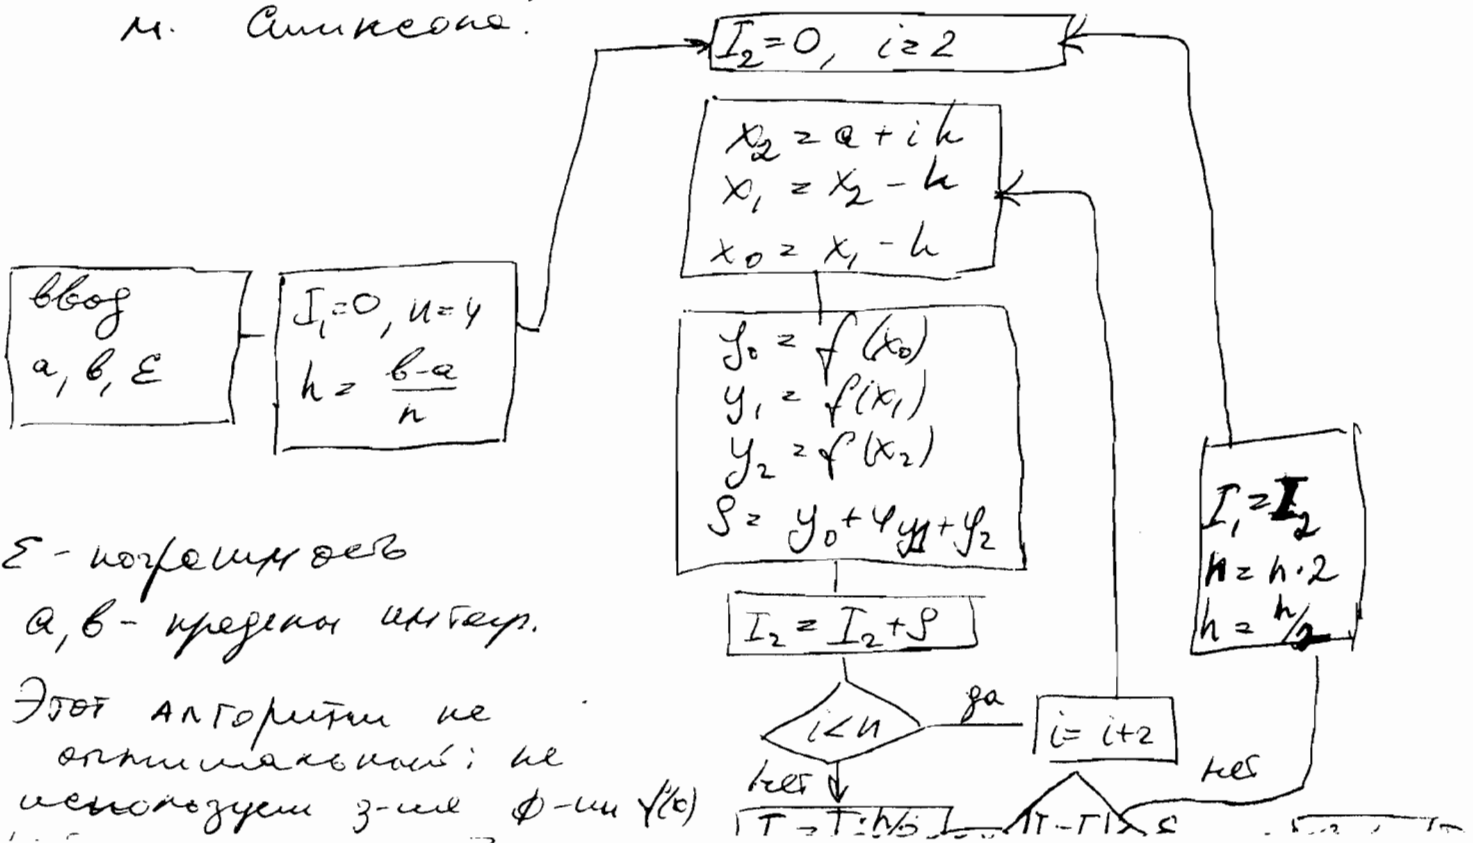 м. Симпсона.
I₂=0, i=2
x₂ = a + ih
x₁ = x₂ - h
x₀ = x₁ - h
ввод
a, в, ε
I₁=0, n=4
h = (в-a)/n
y₀ = f(x₀)
y₁ = f(x₁)
y₂ = f(x₂)
S = y₀+4y₁+y₂
I₂ = I₂+S
i<n
да
i= i+2
нет
I₁=I₂
n= n·2
h = h/2
нет
ε - погрешность
a, в - пределы интегр.
Этот алгоритм не
оптимальный: не
используем з-ие ф-ии f(x)